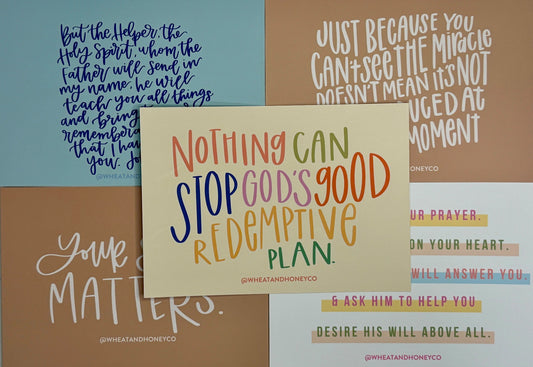 But the Helper, the
Holy Spirit, whom the
Father will send in
my name, he will
teach you all things
and bring
that I ha
you. Jo
@WHEATANDHONEYCO
JUST BECAUSE YOU
CAN'T SEE THE MIRACLE
DOESN'T MEAN IT'S NOT
UCED AT
MOMENT
NOTHING CAN
STOP GOD'S GOOD
REDEMPTIVE
PLAN.
@WHEATANDHONEYCO
Your
MATTERS.
@WHEATANDHONEYCO
UR PRAYER.
ON YOUR HEART.
WILL ANSWER YOU.
& ASK HIM TO HELP YOU
DESIRE HIS WILL ABOVE ALL.
@WHEATANDHONEYCO